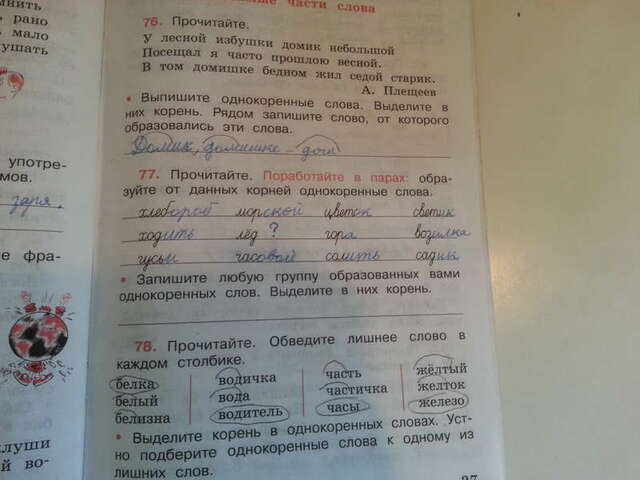 части слова
76. Прочитайте.
У лесной избушки домик небольшой
Посещал я часто прошлою весной.
В том домишке бедном жил седой старик.
А. Плещеев
• Выпишите однокоренные слова. Выделите в
них корень. Рядом запишите слово, от которого
образовались эти слова.
Домик, домишка дом
77. Прочитайте. Поработайте в парах: обра-
зуйте от данных корней однокоренные слова.
хлебороб морской цветок светик
ходить лед ? гора
гусы часовой садить
• Запишите любую группу образованных вами
однокоренных слов. Выделите в них корень.
78. Прочитайте. Обведите лишнее слово в
каждом столбике.
белка водичка часть жёлтый
белый вода частичка желток
белизна водитель часы железо
• Выделите корень в однокоренных словах. Уст-
но подберите однокоренные слова к одному из
лишних слов.
употре-
е фра-
мнить
рано
мало
ушать
луши
й во-